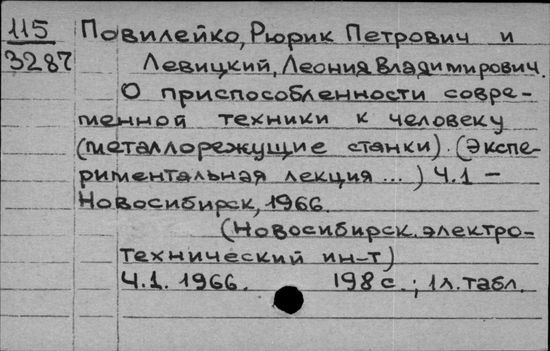 115 Повилейко, Рюрик Петрович и
3287 Левицкий, Леонид Владимирович.
О приспособленности совре-
менной техники к человеку
(металлорежущие станки). (Экспе-
риментальная лекция ...) Ч.1 –
Новосибирск, 1966.
(Новосибирск. электро-
технический ин-т)
Ч.1. 1966. 198 с.; 1 л. табл.